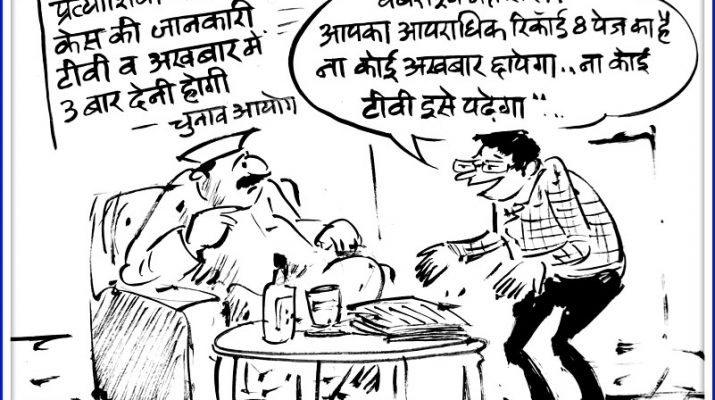 केस की जानकारी
टीवी व अखबार में
3 बार देनी होगी
– चुनाव आयोग
आपका आपराधिक रिकॉर्ड 8 पेज का है
ना कोई अखबार छापेगा.. ना कोई
टीवी इसे पढ़ेगा"..